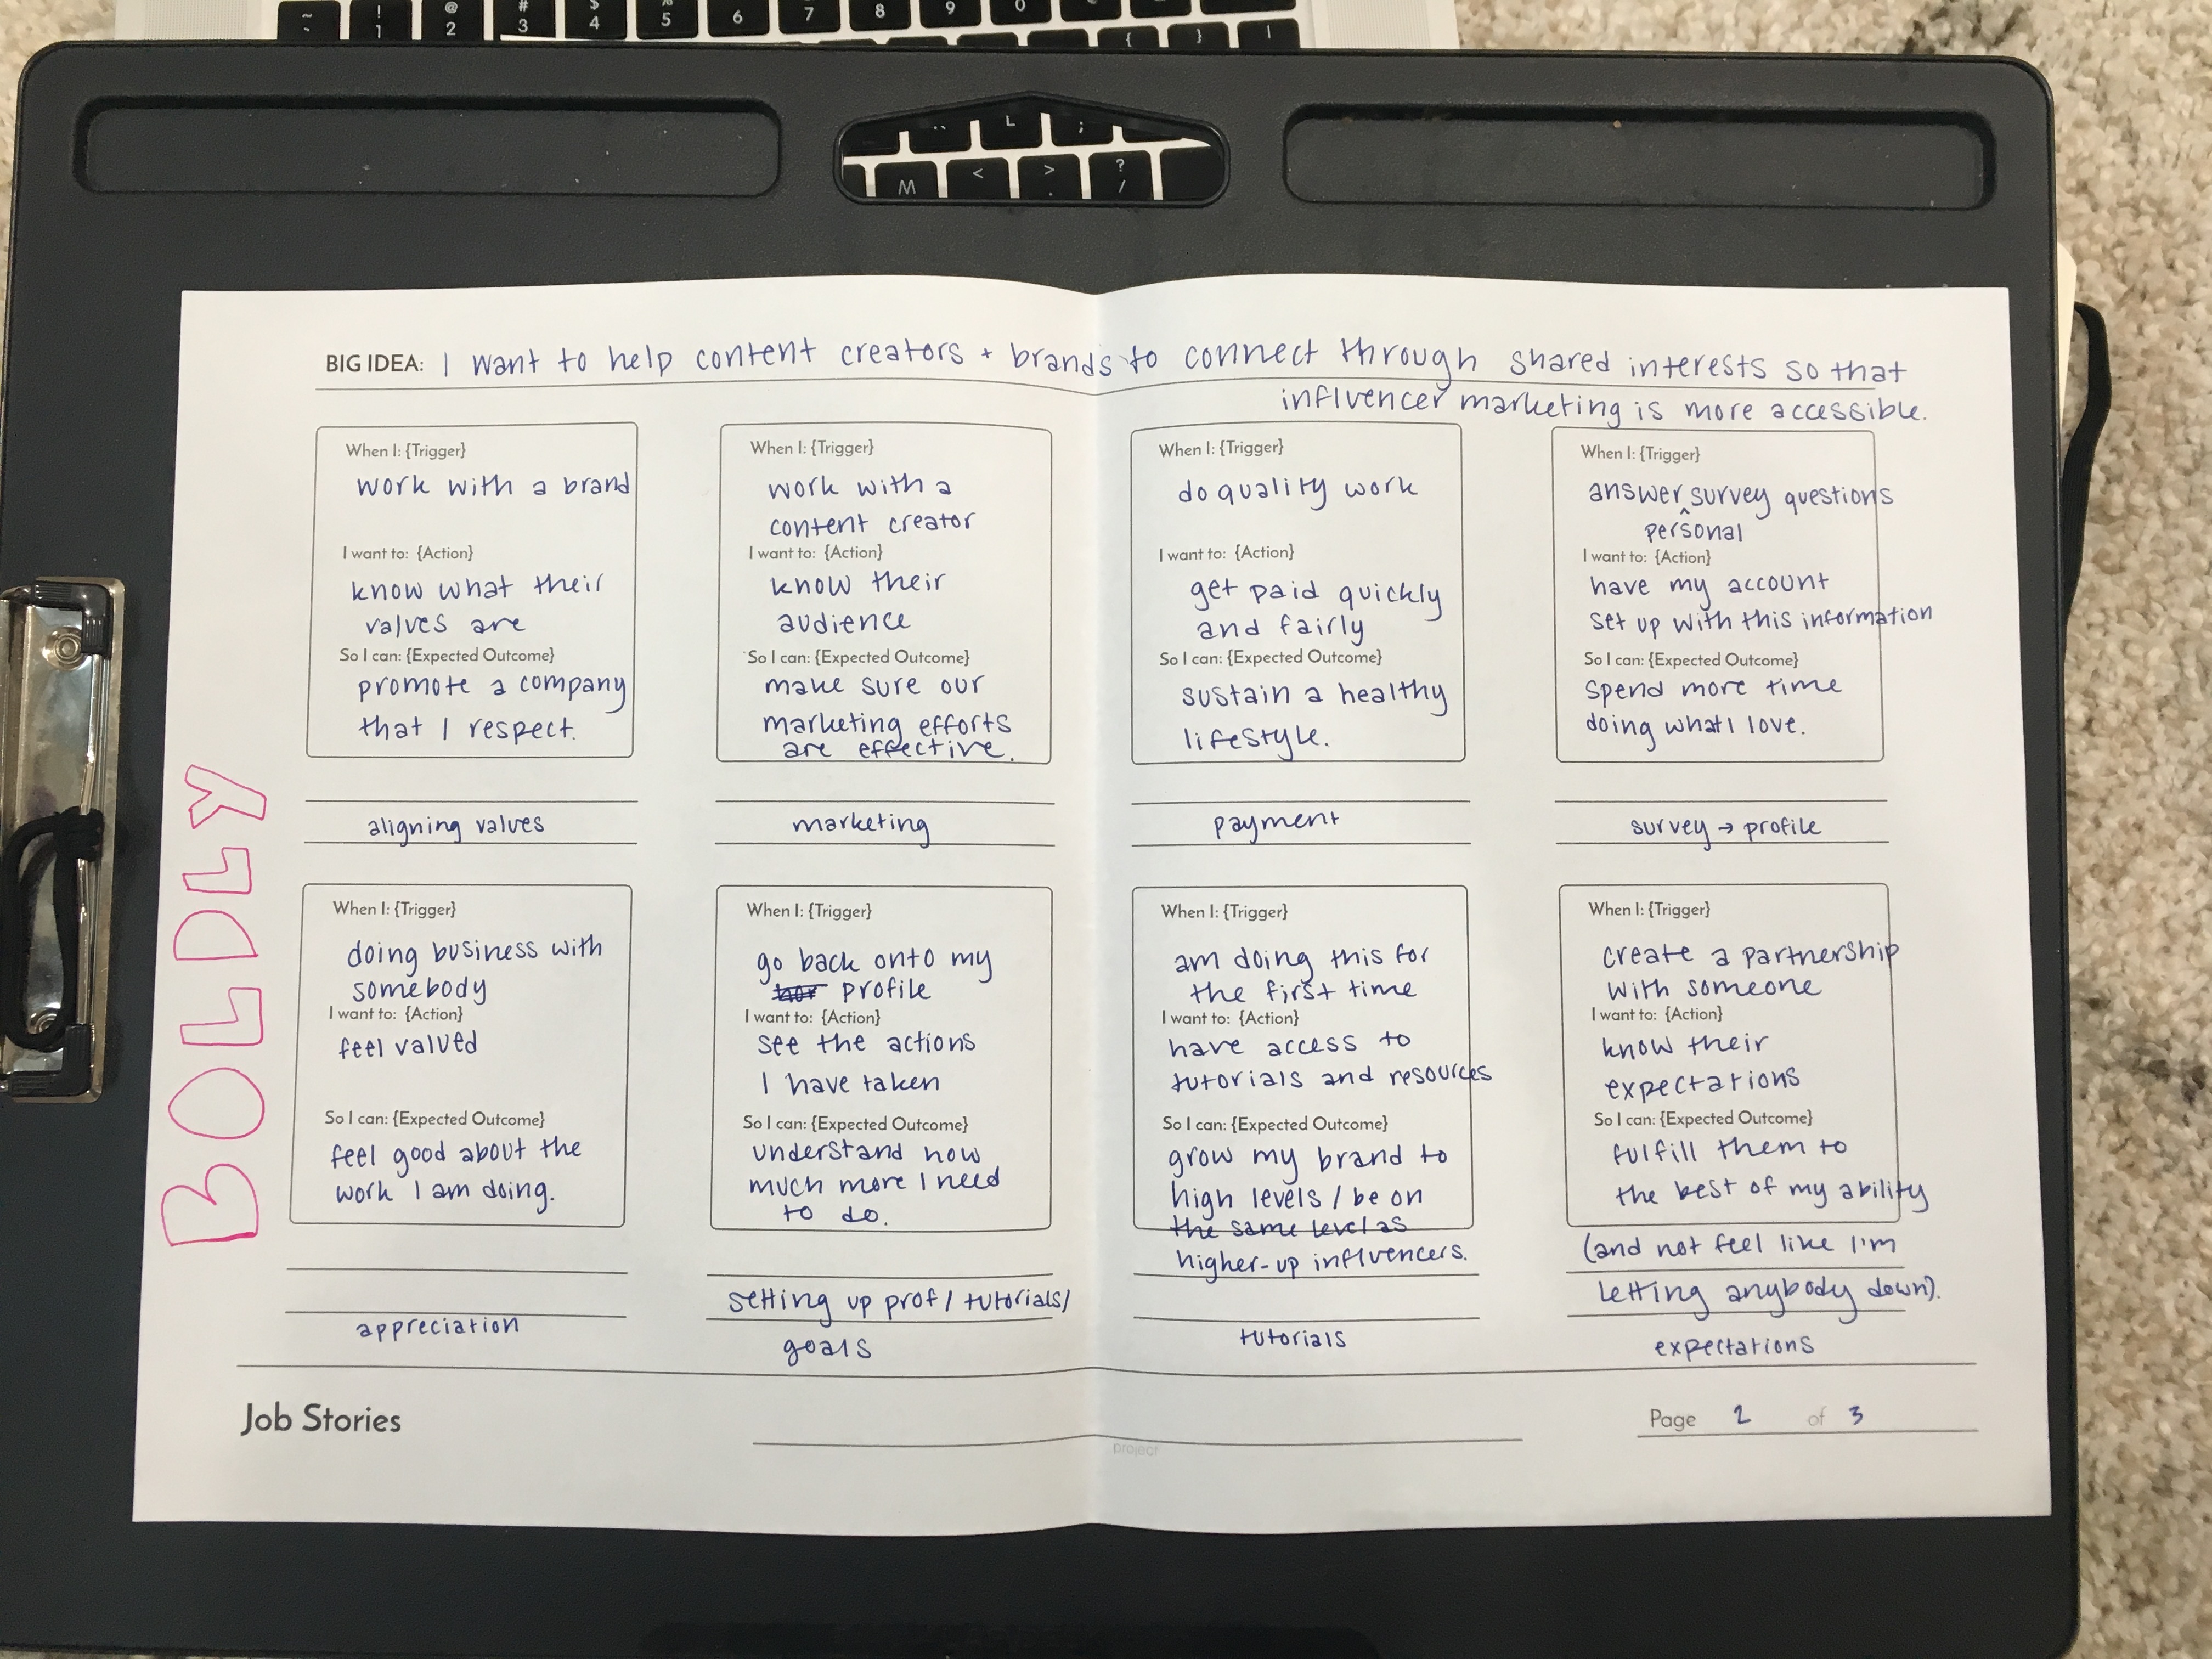 ~
`
!
1
@
2
#
3
$
4
%
5
6
7
8
9
0
{
}
|
L
;
M
<
>
.
?
/
BIG IDEA: I want to help content creators + brands to connect through shared interests so that
influencer marketing is more accessible.
When I: {Trigger}
work with a brand
I want to: {Action}
know what their
values are
So I can: {Expected Outcome}
promote a company
that I respect.
aligning values
When I: {Trigger}
work with a
content creator
I want to: {Action}
know their
audience
So I can: {Expected Outcome}
make sure our
marketing efforts
are effective.
marketing
When I: {Trigger}
do quality work
I want to: {Action}
get paid quickly
and fairly
So I can: {Expected Outcome}
sustain a healthy
lifestyle.
payment
When I: {Trigger}
answer ^ survey questions
personal
I want to: {Action}
have my account
set up with this information
So I can: {Expected Outcome}
spend more time
doing what I love.
survey → profile
BOLDLY
When I: {Trigger}
doing business with
somebody
I want to: {Action}
feel valued
So I can: {Expected Outcome}
feel good about the
work I am doing.
appreciation
When I: {Trigger}
go back onto my
profile
I want to: {Action}
see the actions
I have taken
So I can: {Expected Outcome}
understand how
much more I need
to do.
setting up prof / tutorials /
goals
When I: {Trigger}
am doing this for
the first time
I want to: {Action}
have access to
tutorials and resources
So I can: {Expected Outcome}
grow my brand to
high levels / be on
the same level as
higher-up influencers.
tutorials
When I: {Trigger}
create a partnership
with someone
I want to: {Action}
know their
expectations
So I can: {Expected Outcome}
fulfill them to
the best of my ability
(and not feel like I'm
letting anybody down).
expectations
Job Stories
project
Page 2 of 3